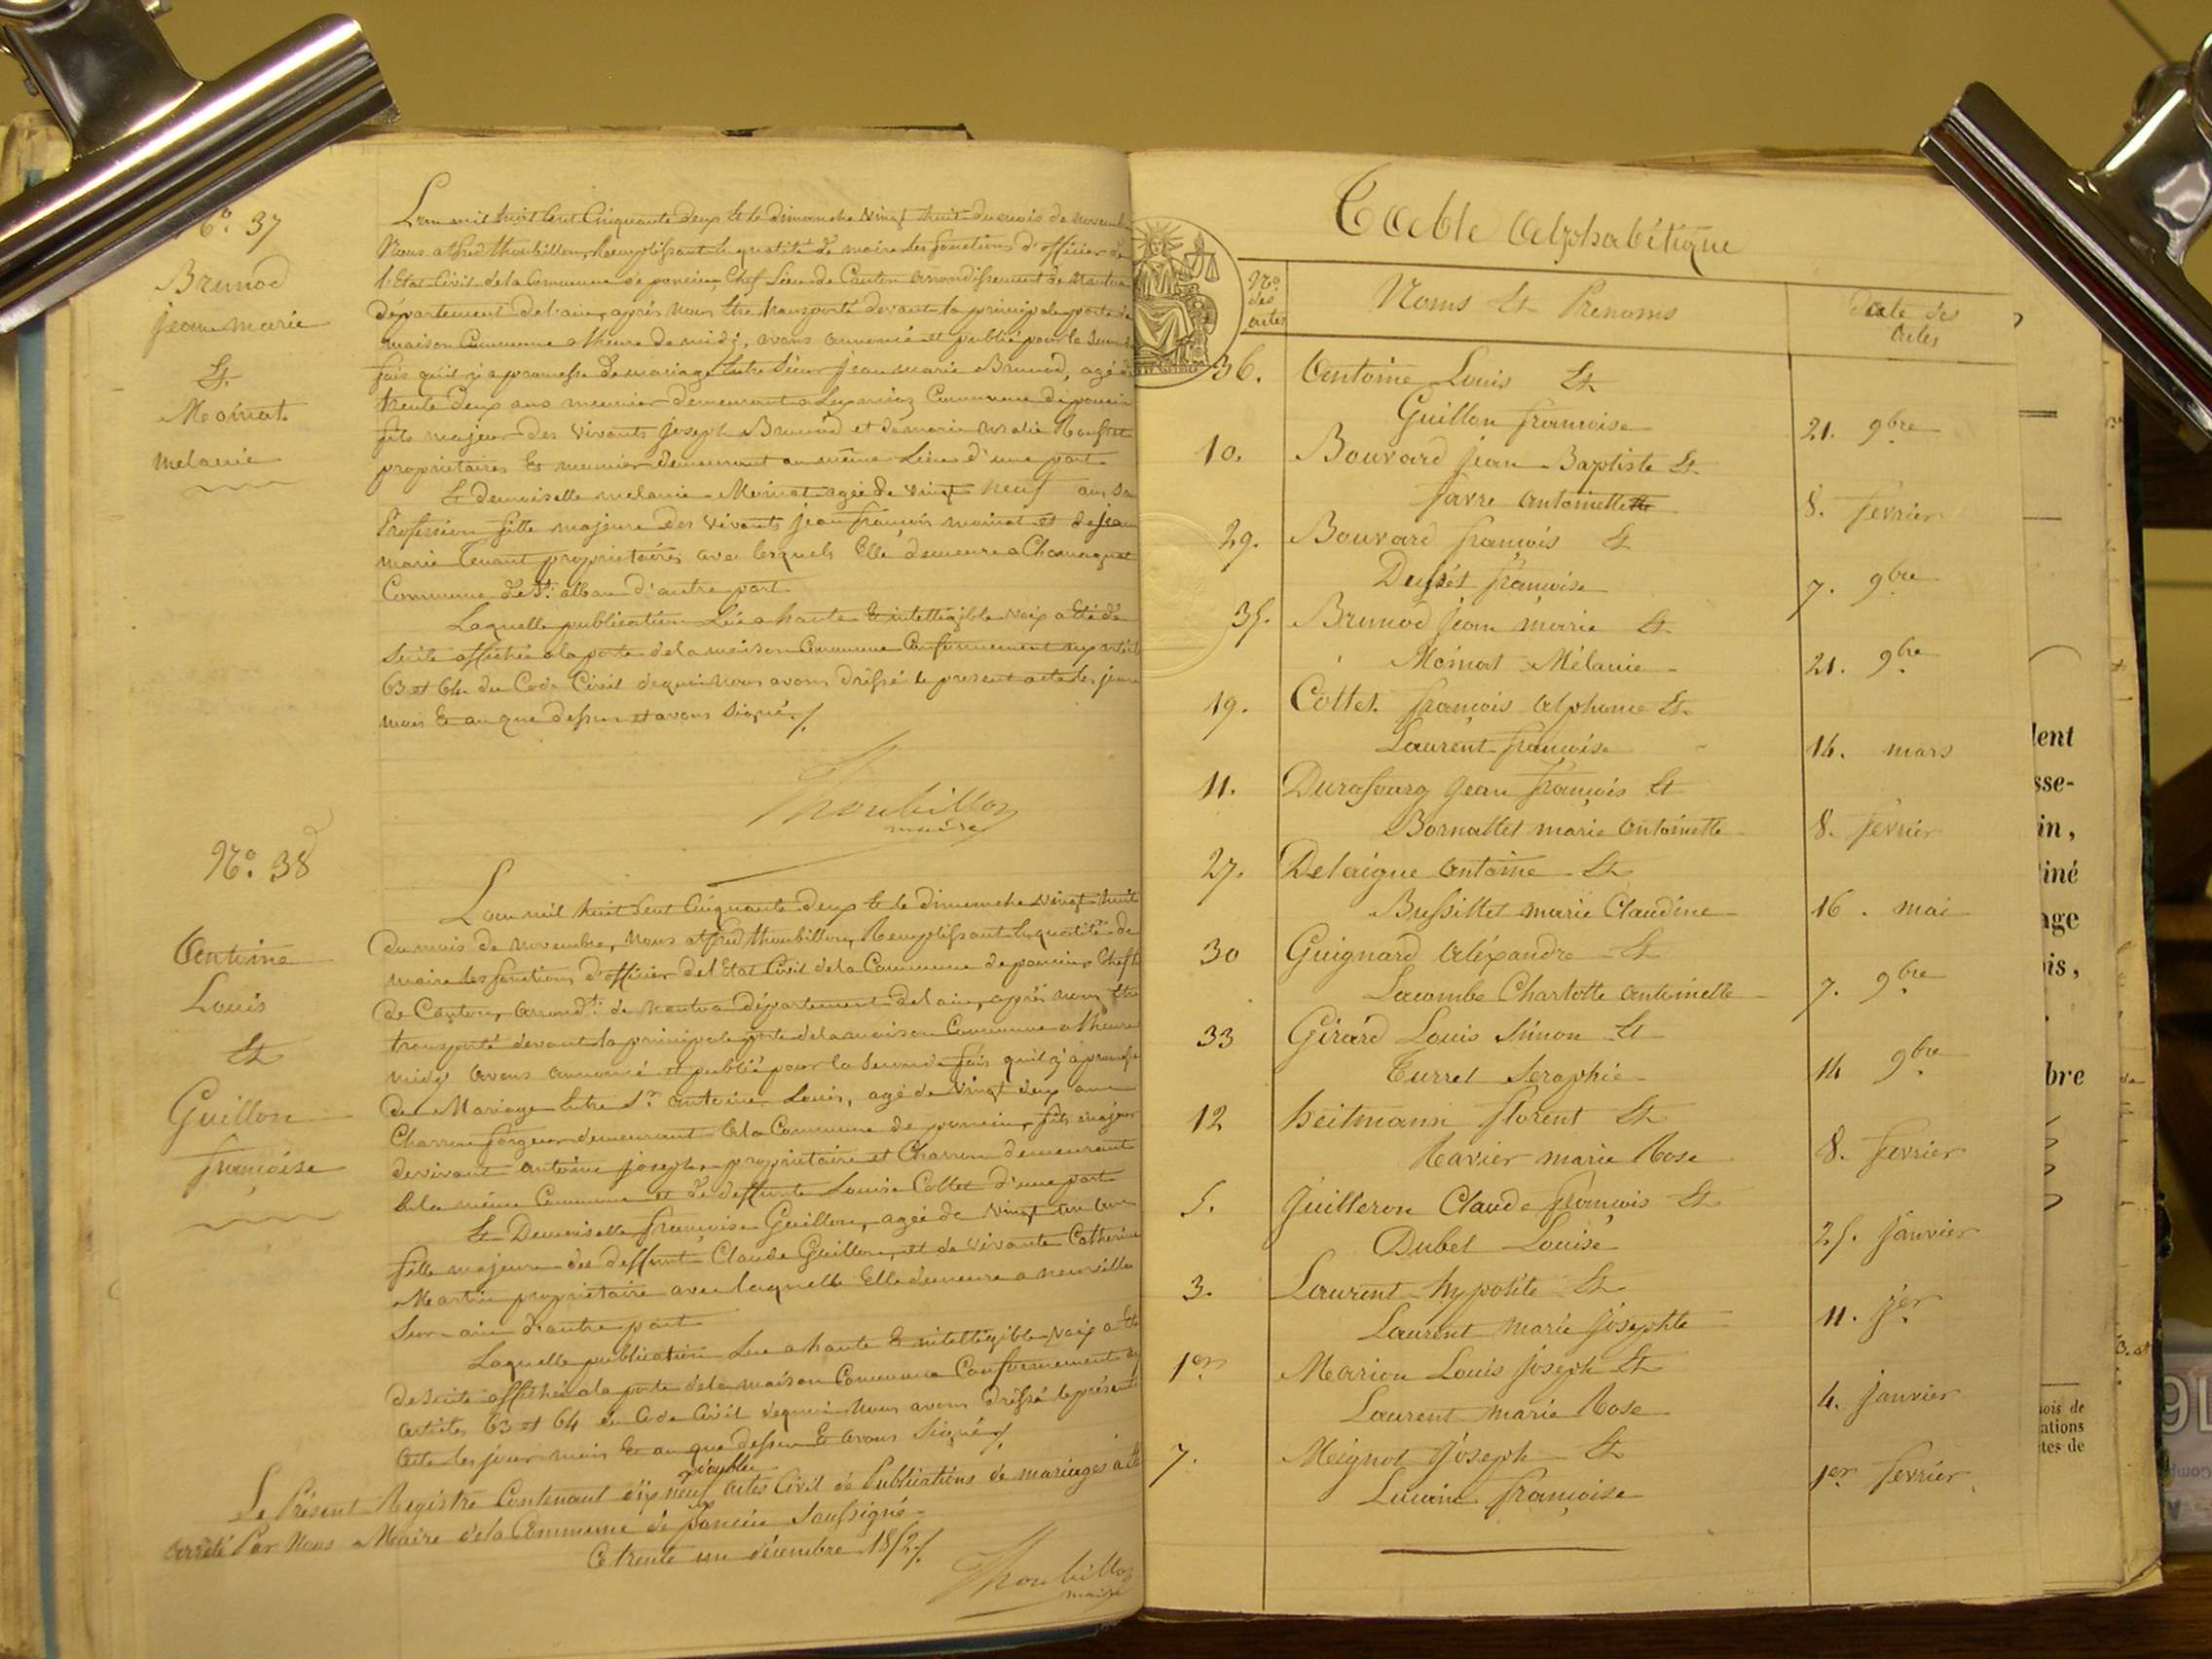 No. 37
Brunod
jean marie
Et
Moinat
melanie
L'an mil huit Cent Cinquante deux Et le dimanche Vingt huit du mois de novembre
Nous alfred thoubillon, Remplissant la qualité de maire les fonctions d'officier de
l'Etat Civil de la Commune de poncin, Chef Lieu de Canton arrondissement de Nantua
département de l'ain, après nous être transporté devant la principale porte de
maison Commune a l'heure de midi, avons annoncé et publié pour la
fois qu'il y a promesse de mariage Entre Sieur jean marie Brunod, agé de
trente Deux ans meunier demeurant a Commune de poncin
fils majeur des vivants joseph Brunod et de marie
propriétaires Et meunier demeurant au même Lieu d'une part
Et demoiselle melanie Moinat agée de vingt neuf ans San
Profession fille majeure des vivants jean françois moinat et de jean
marie Tenant propriétaires avec lesquels Elle demeure a
Commune de St. alban d'autre part
Laquelle publication Lue a haute Et intelligible voix a Eté de
Suite affichée a la porte de la maison Commune Conformement aux articles
63 et 64 du Code Civil de quoi nous avons dréssé le present acte les jour
mois Et an que dessus et avons Signé ./.
Thoubillon
maire
No. 38
Antoine
Louis
Et
Guillon
françoise
L'an mil huit Cent Cinquante deux Et le dimanche vingt huit
du mois de novembre, nous alfred thoubillon, Remplissant la qualité de
maire les fonctions d'officier de l'Etat Civil de la Commune de poncin, Chef L
de Canton, arrondt. de nantua département de l'ain, après nous être
transporté devant la principale porte de la maison Commune a l'heure
midy avons annoncé et publié pour la Seconde fois qu'il y a promesse
de Mariage Entre Sr antoine Louis, agé de vingt deux ans
Charron forgeur demeurant En la Commune de poncin, fils majeur
de vivant antoine joseph, propriétaire et Charron demeurant
En la même Commune et de deffunte Louise Collet d'une part
Et Demoiselle françoise Guillon, agée de vingt un ans
fille majeure de deffunt Claude Guillon, et de vivante Catherine
Martin propriétaire avec laquelle Elle demeure a neuville
Sur ain d'autre part
Laquelle publication Lue a haute Et intelligible voix a Eté
de Suite affichée a la porte de la maison Commune Conformement aux
articles 63 et 64 du Code Civil de quoi Nous avons dréssé le présent
acte les jour mois Et an que dessus Et avons Signé ./.
Le Présent Registre Contenant dix neuf doubles actes Civil de Publications de mariages à été
arrêté Par Nous Maire de la Commune de poncin Soussigné
Ce trente un décembre 1852 ./.
Thoubillon
maire
Table Alphabétique
No. des actes
Noms Et Prenoms
Date des Actes
36. Antoine Louis Et
Guillon françoise 21. 9bre
10. Bouvard jean Baptiste Et
favre antoinette 8. fevrier
29. Bouvard françois Et
françoise 7. 9bre
35. Brunod jean marie Et
Moinat Mélanie 21. 9bre
19. Collet françois alphonse Et
Laurent françoise 14. mars
11. Durafourg jean françois Et
Bornattet marie antoinette 8. fevrier
27. Delaigue antoine Et
Bussillet marie Claudine 16. mai
30 Guignard aléxandre Et
Lacombe Charlotte antoinette 7. 9bre
33 Girard Louis Simon Et
Turrel Seraphie 14 9bre
12 heitmann florent Et
Ravier marie Rose 8. fevrier
5. juilleron Claude françois Et
Dubel Louise 25. janvier
3. Laurent hypolite Et
Laurent marie josephte 11. jer
1er Marion Louis joseph Et
Laurent marie Rose 4. janvier
7. Meignot joseph Et
françoise 1er fevrier
lent
sse-
in,
iné
age
is,
bre
ois de
ations
tes de